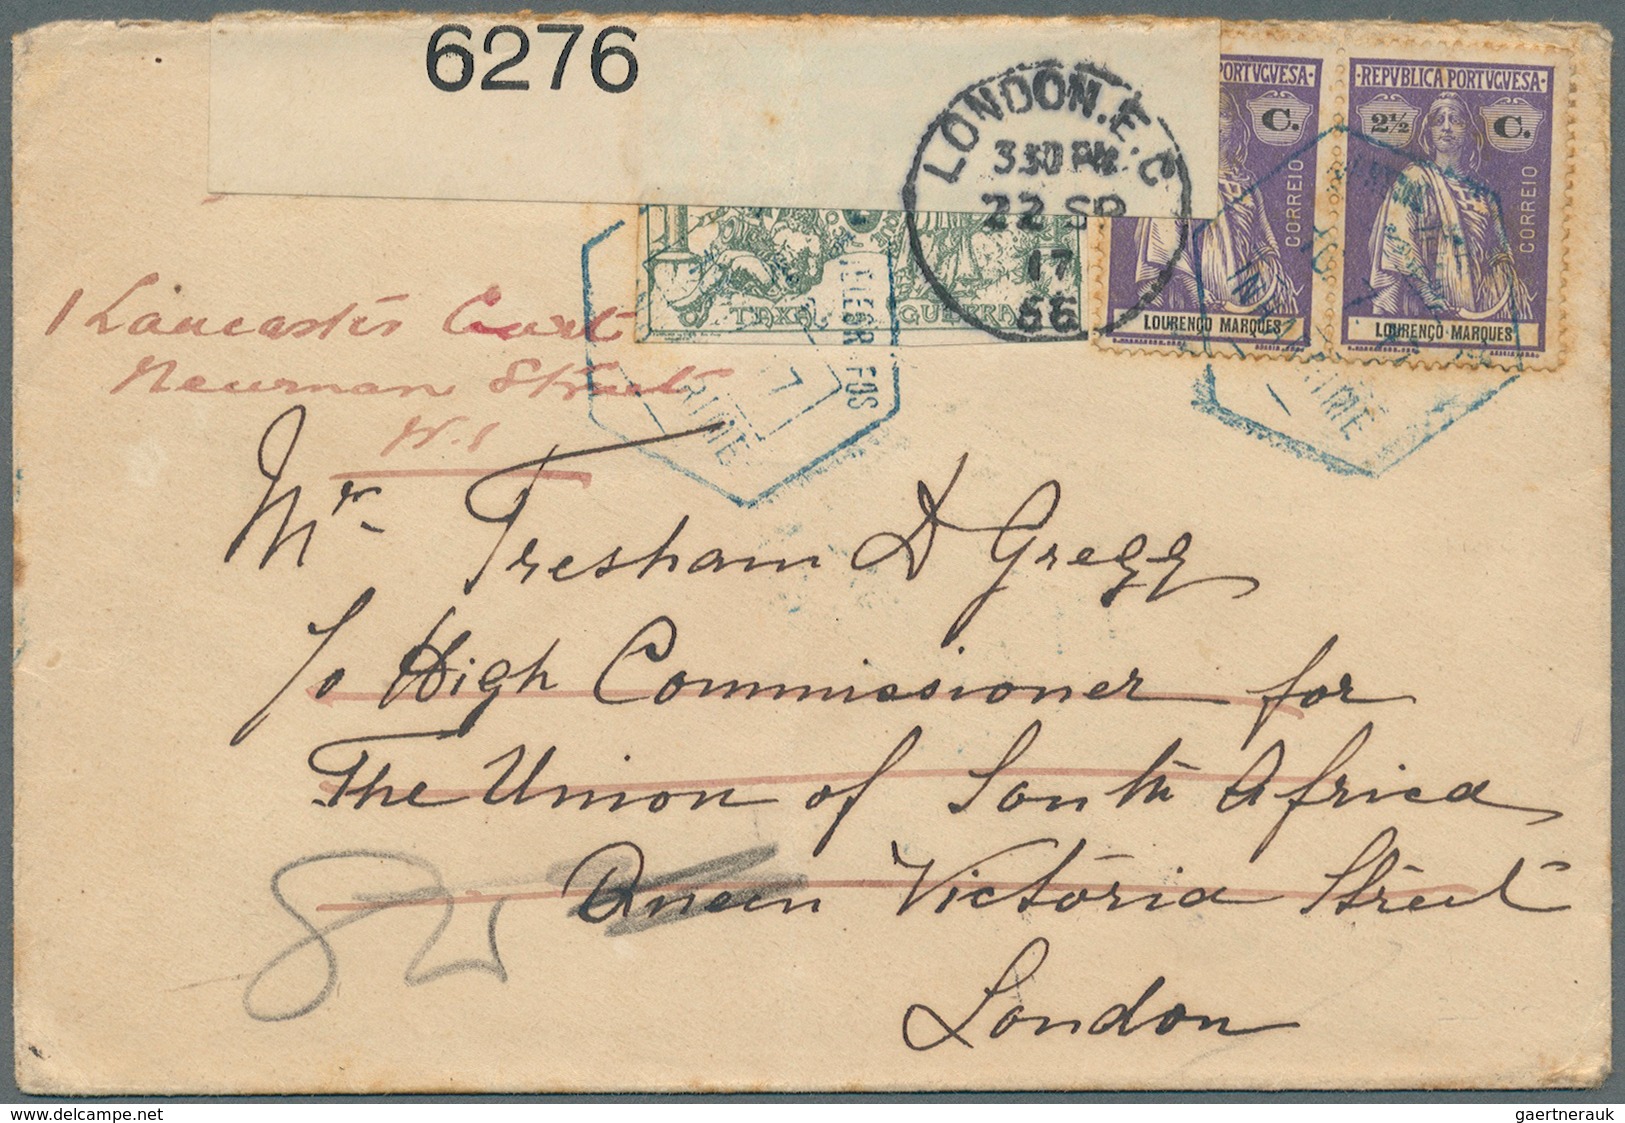 6276
LONDON.E.C
3 30 PM
22 SP
17
66
PORTVGVESA·
C.
CORREIO
LOURENÇO MARQUES
·REPVBLICA PORTVGVESA·
2½ C.
CORREIO
LOURENÇO MARQUES
TAXA GUERRA
1 Lancaster Court
Newman Street
W.1
Mr. Tresham D Gregg
To High Commissioner for
The Union of South Africa
Queen Victoria Street
London
delcampe.net
gaertnerauk